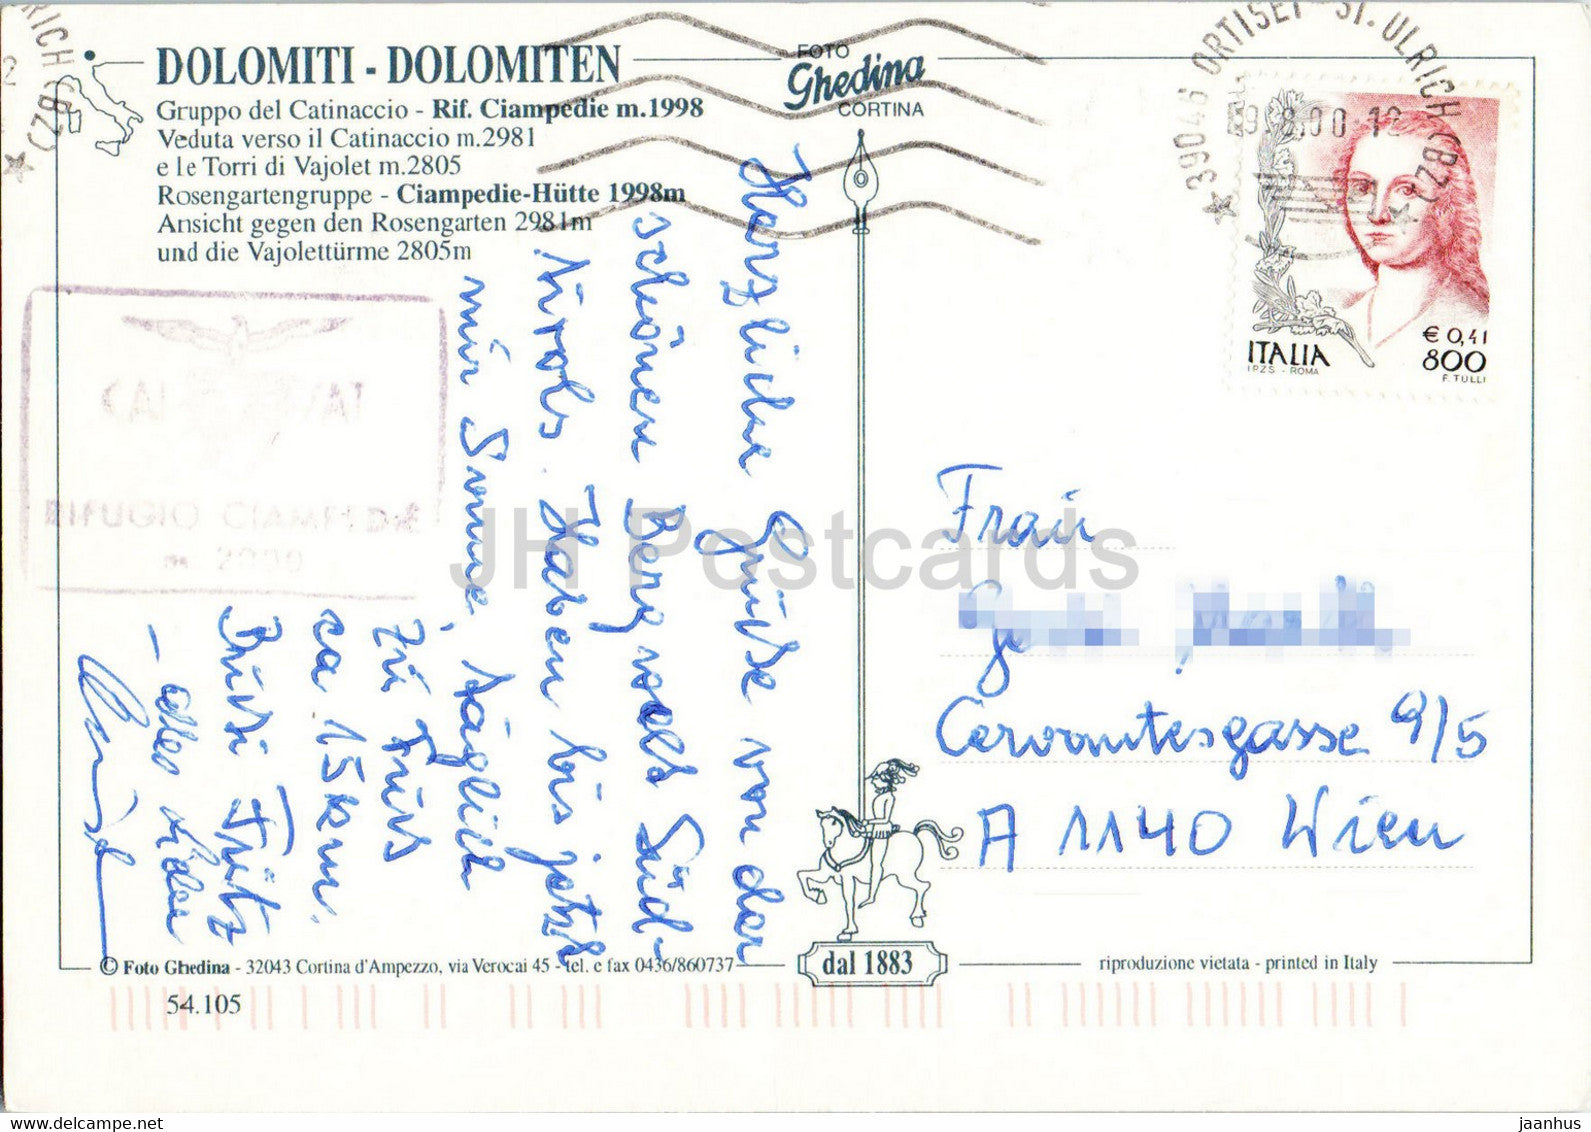 DOLOMITI - DOLOMITEN
Gruppo del Catinaccio - Rif. Ciampedie m.1998
Veduta verso il Catinaccio m.2981
e le Torri di Vajolet m.2805
Rosengartengruppe - Ciampedie-Hütte 1998m
Ansicht gegen den Rosengarten 2981m
und die Vajolettürme 2805m
FOTO
Ghedina
CORTINA
39046 ORTISEI - ST. ULRICH (BZ)
ITALIA
I.P.Z.S. - ROMA
€ 0,41
800
F. TULLI
CAI
RIFUGIO CIAMPEDIE
m 2000
Herzliche Grüße von der
schönen Bergwelt Süd-
tirols. Haben bis jetzt
nur Sonne, täglich
zu Fuß
ca 15 km.
Bussi Fritz
Frau
Cervantesgasse 9/5
A 1140 Wien
JH Postcards
dal 1883
© Foto Ghedina - 32043 Cortina d'Ampezzo, via Verocai 45 - tel. e fax 0436/860737
riproduzione vietata - printed in Italy
54.105
jaanhus